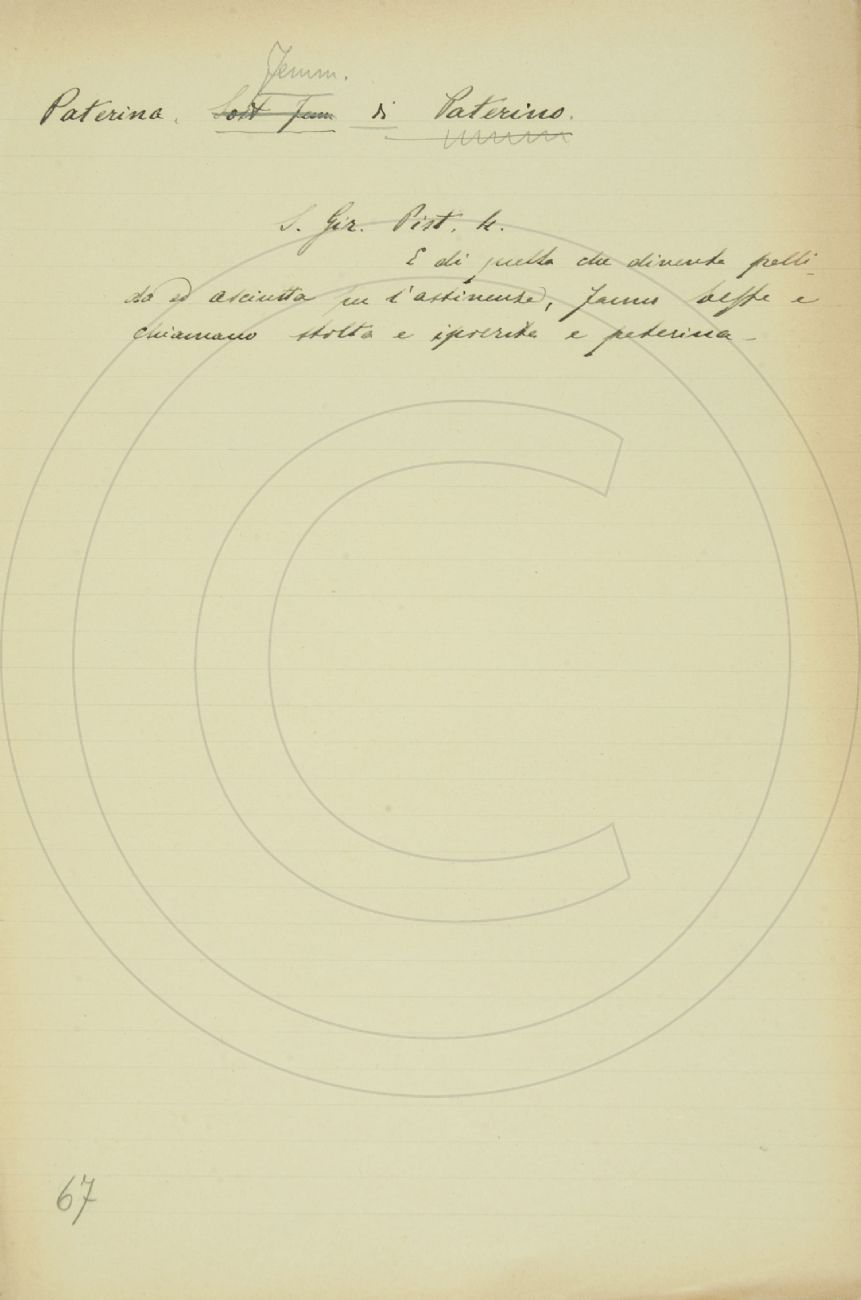 Femm.
Paterina. Sost. Fem. di Paterino.
S. Gir. Pist. k.
E di quella che diventa palli-
da ed asciutta per l'astinenza, fanno beffe e
chiamano stolta e ipocrita e paterina -
67